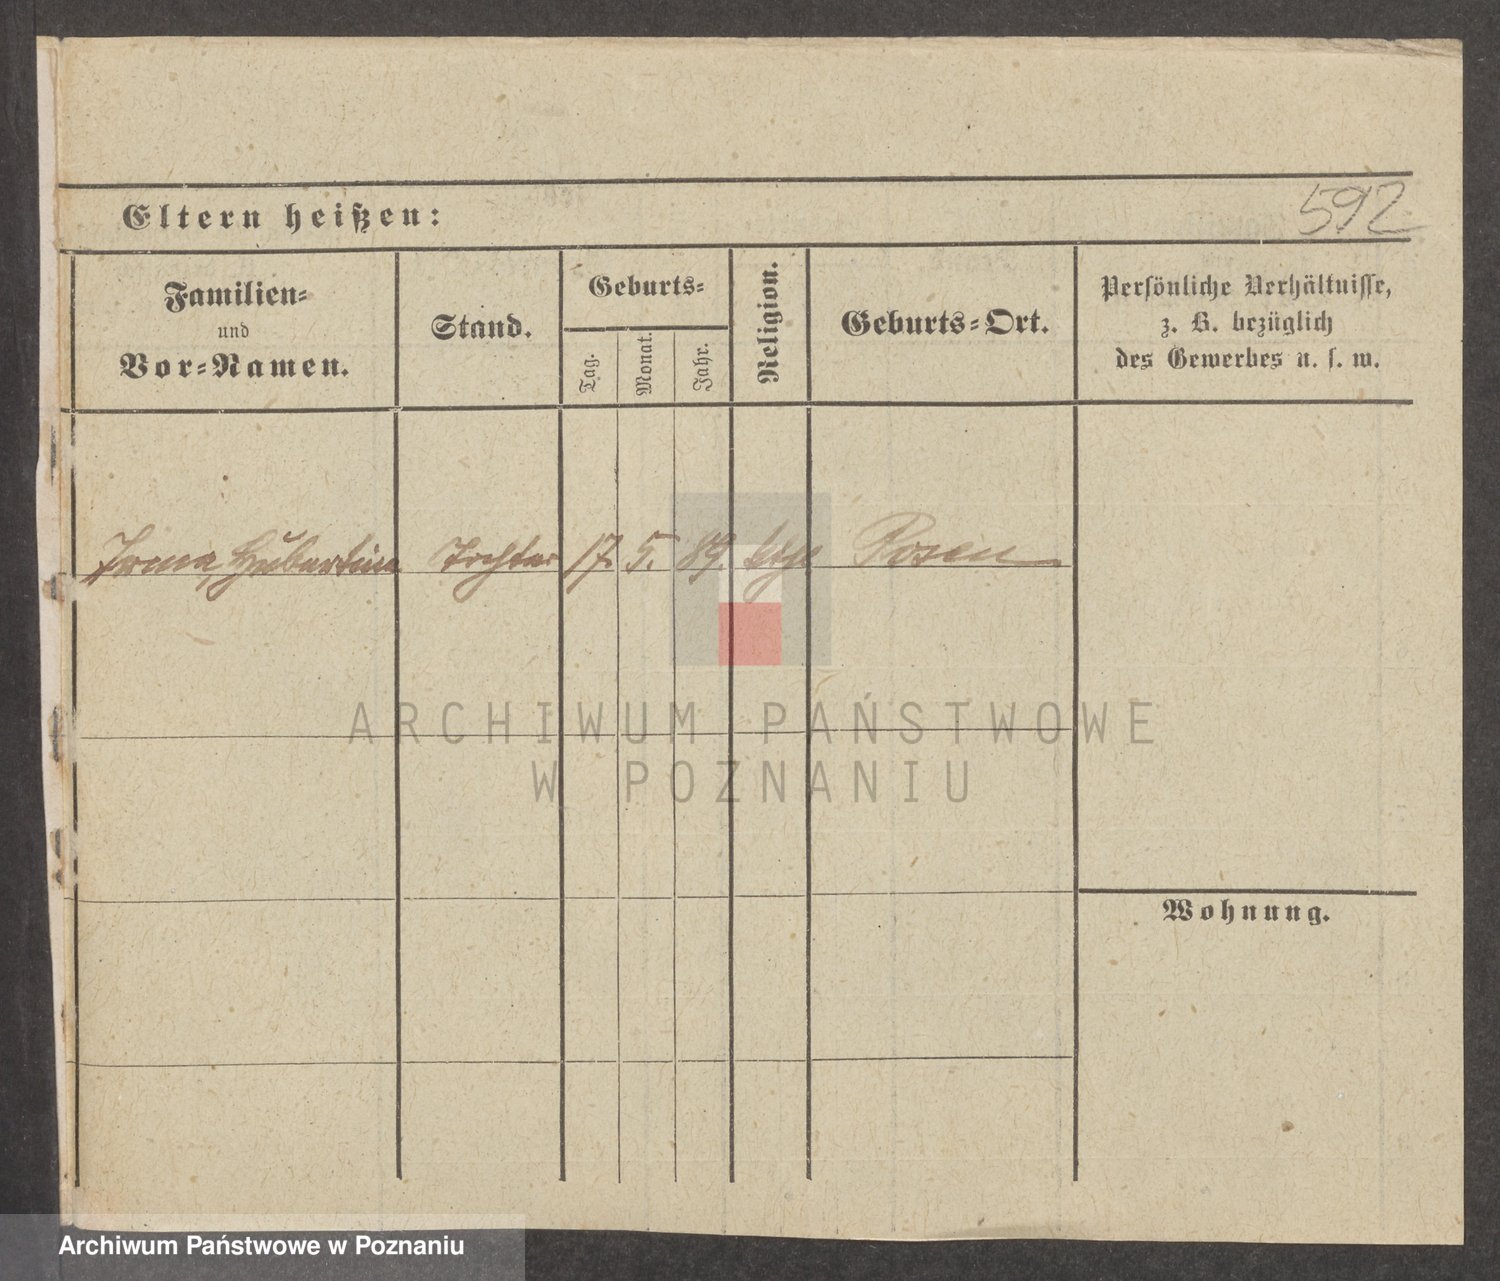 592
Eltern heißen:
Familien-
und
Vor-Namen.
Stand.
Geburts-
Tag.
Monat.
Jahr.
Religion.
Geburts-Ort.
Persönliche Verhältnisse,
z. B. bezüglich
des Gewerbes u. s. w.
Irma, Hubertine Tochter 17. 5. 89. Posen
Wohnung.
ARCHIWUM PAŃSTWOWE
W POZNANIU
Archiwum Państwowe w Poznaniu